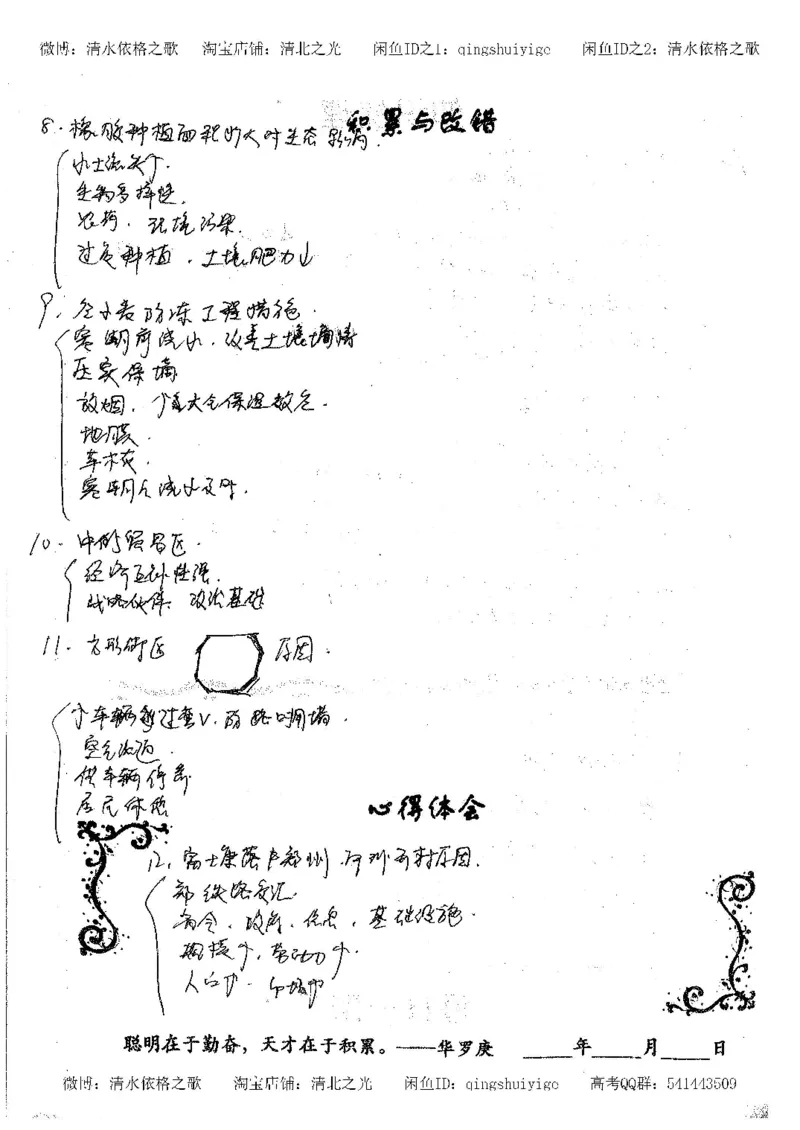 微博：清水依格之歌 淘宝店铺：清北之光 闲鱼ID之1：qingshuiyige 闲鱼ID之2：清水依格之歌
积累与改错
8. 橡胶种植面积扩大对生态影响.
水土流失↑.
生物多样性.
农药. 环境污染.
过度种植. 土壤肥力↓
9. 冬小麦防冻工程措施.
寒潮前浇水. 改善土壤墒情
压实保墒
放烟. 大气保温效应.
地膜.
草木灰.
寒潮后浇水及时.
10. 中 贸易区.
经济互补性强.
战略伙伴. 政治基础
11. 方形街区 原因.
车辆 过弯V. 防路口拥堵.
空气流通.
供车辆停靠
居民休憩
心得体会
12. 富士康落户郑州. 原因.
郑 铁路交汇.
政府. 优惠. 基础设施.
规模↑. 劳动力↑.
人口↑. 市场↑
聪明在于勤奋，天才在于积累。——华罗庚 年 月 日
微博：清水依格之歌 淘宝店铺：清北之光 闲鱼ID：qingshuiyige 高考QQ群：541443509